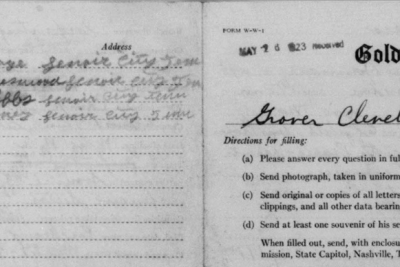 Address
Lenoir City Tenn
Lenoir City Tenn
Lenoir City Tenn
Lenoir City Tenn
FORM W-W-1
MAY 26 1923 received
Gold
Grover Clevel
Directions for filling:
(a) Please answer every question in ful
(b) Send photograph, taken in uniform
(c) Send original or copies of all letters
clippings, and all other data bearin
(d) Send at least one souvenir of his se
When filled out, send, with enclosu
mission, State Capitol, Nashville, T